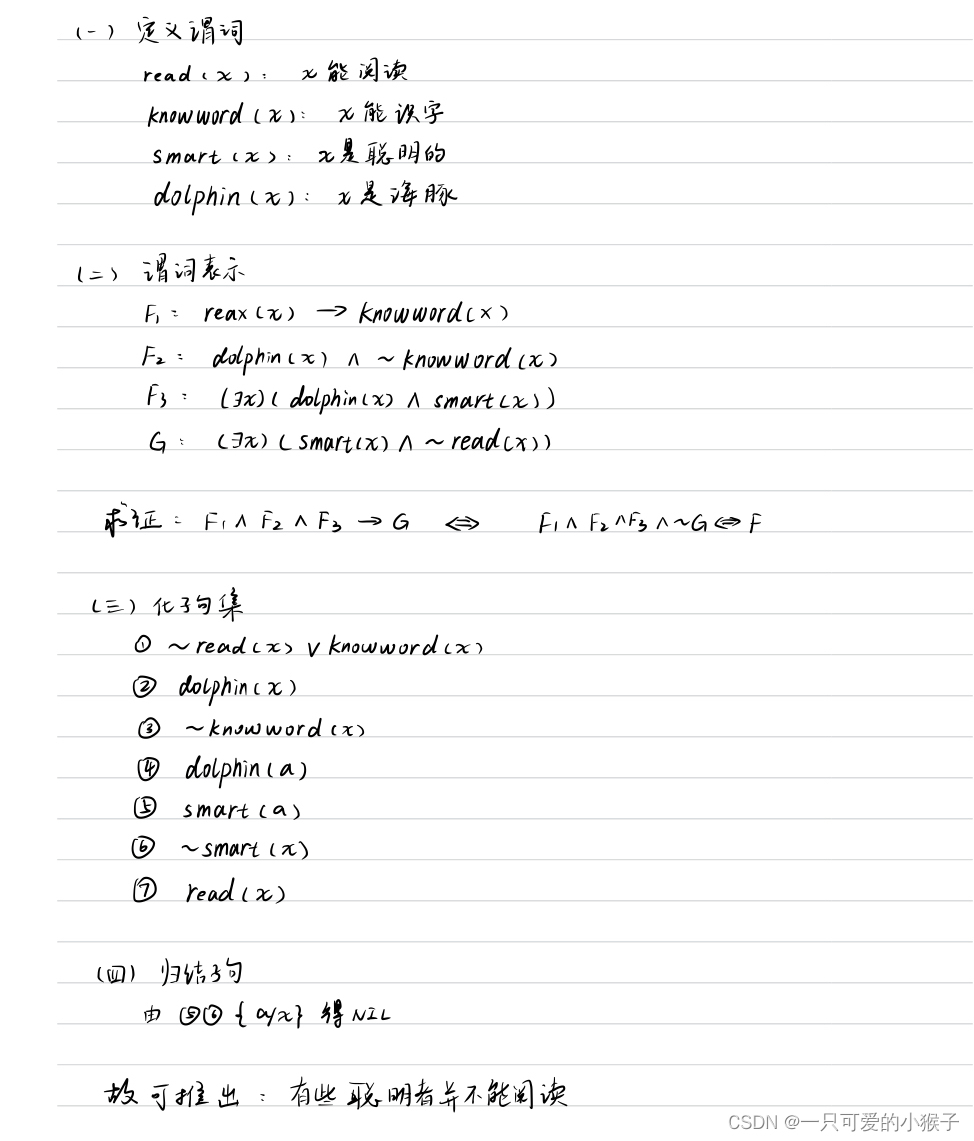 (一) 定义谓词
read(x): x能阅读
knowword(x): x能识字
smart(x): x是聪明的
dolphin(x): x是海豚
(二) 谓词表示
F₁: reax(x) → knowword(x)
F₂: dolphin(x) ∧ ~knowword(x)
F₃: (∃x)(dolphin(x) ∧ smart(x))
G: (∃x)(smart(x) ∧ ~read(x))
求证: F₁ ∧ F₂ ∧ F₃ → G ⇔ F₁ ∧ F₂ ∧ F₃ ∧ ~G ⇔ F
(三) 化子句集
① ~read(x) ∨ knowword(x)
② dolphin(x)
③ ~knowword(x)
④ dolphin(a)
⑤ smart(a)
⑥ ~smart(x)
⑦ read(x)
(四) 归结子句
由 ⑤⑥ {a/x} 得 NIL
故可推出: 有些聪明者并不能阅读
CSDN @一只可爱的小猴子